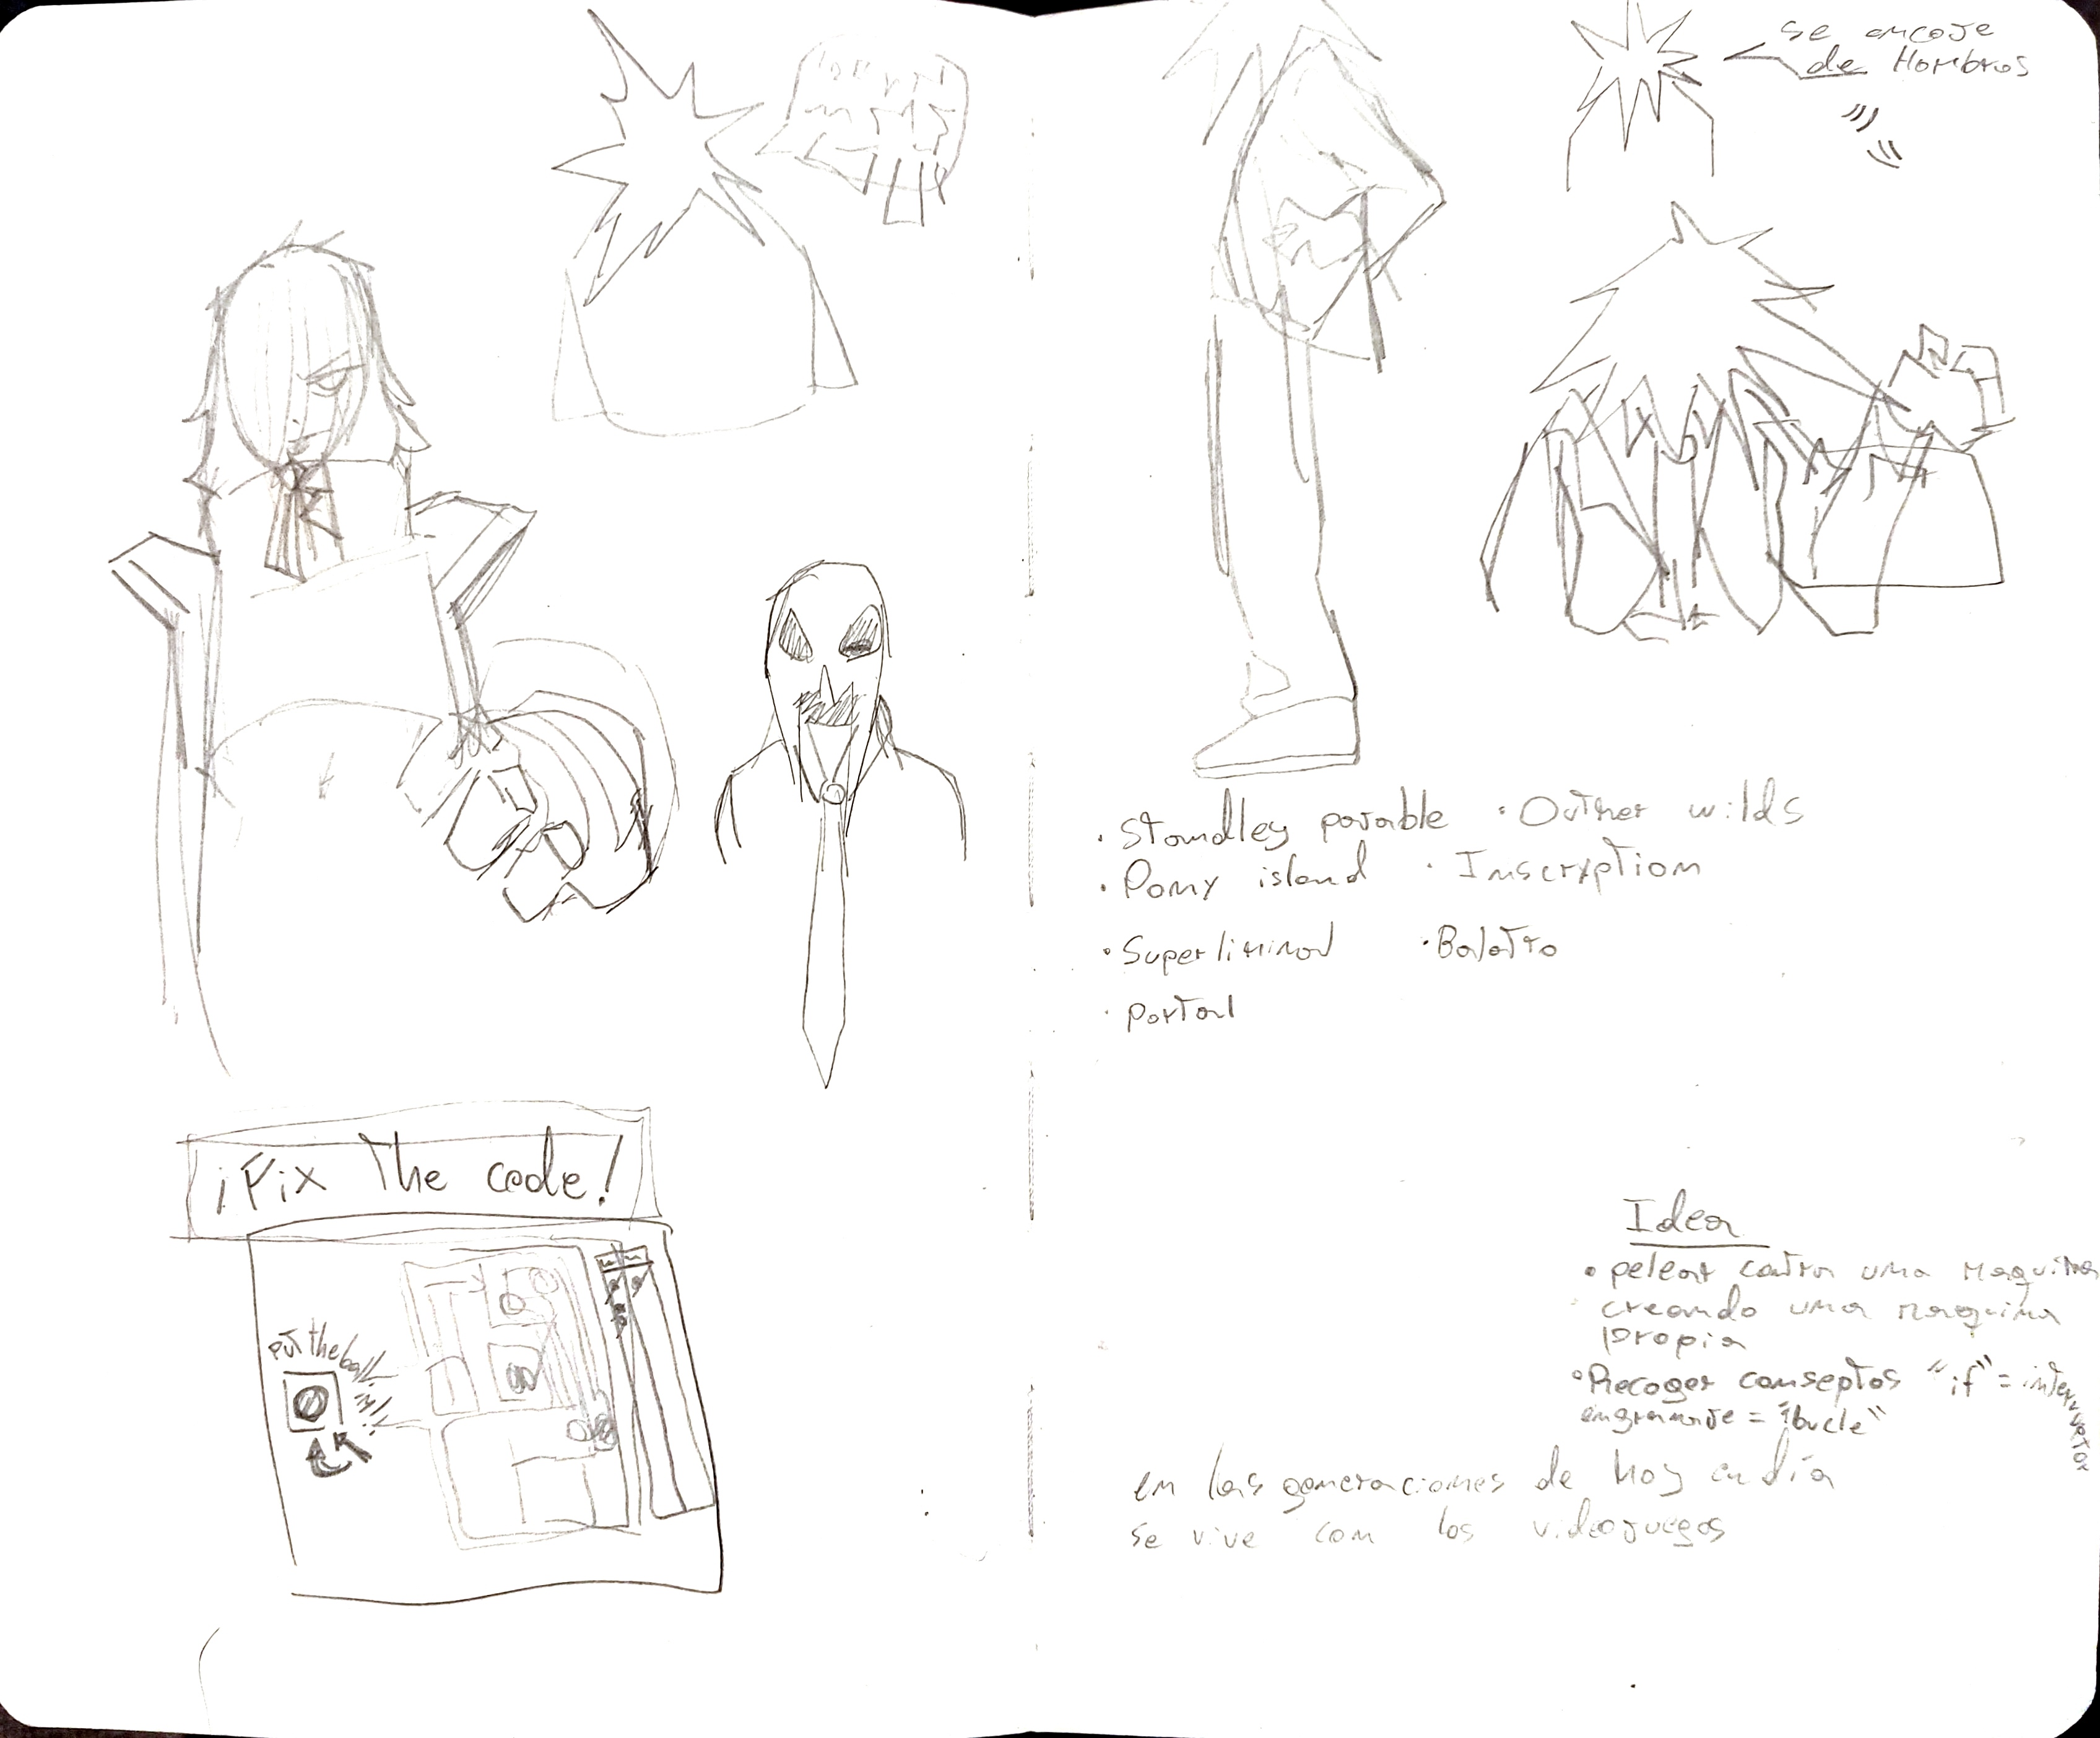 ¡Fix The code!
put the ball
se encoje
de Hombros
· Standley parable · Outher wilds
· Pony island · Inscryption
· Superliminal · Balatro
· portal
Idea
• pelear contra una Maquina
creando una maquina
propia
• Recoger conseptos "if" = interruptor
engranaje = "bucle"
en las generaciones de hoy en día
se vive con los videojuegos